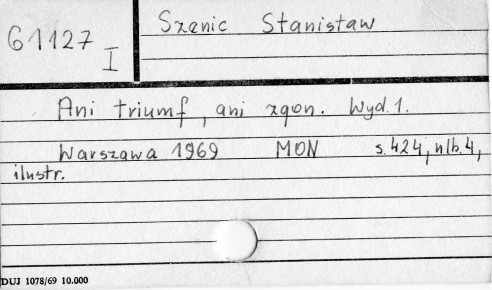 61127
I
Szenic Stanisław
Ani triumf, ani zgon. Wyd. 1.
Warszawa 1969 MON s. 424, nlb. 4,
ilustr.
DUJ 1078/69 10.000